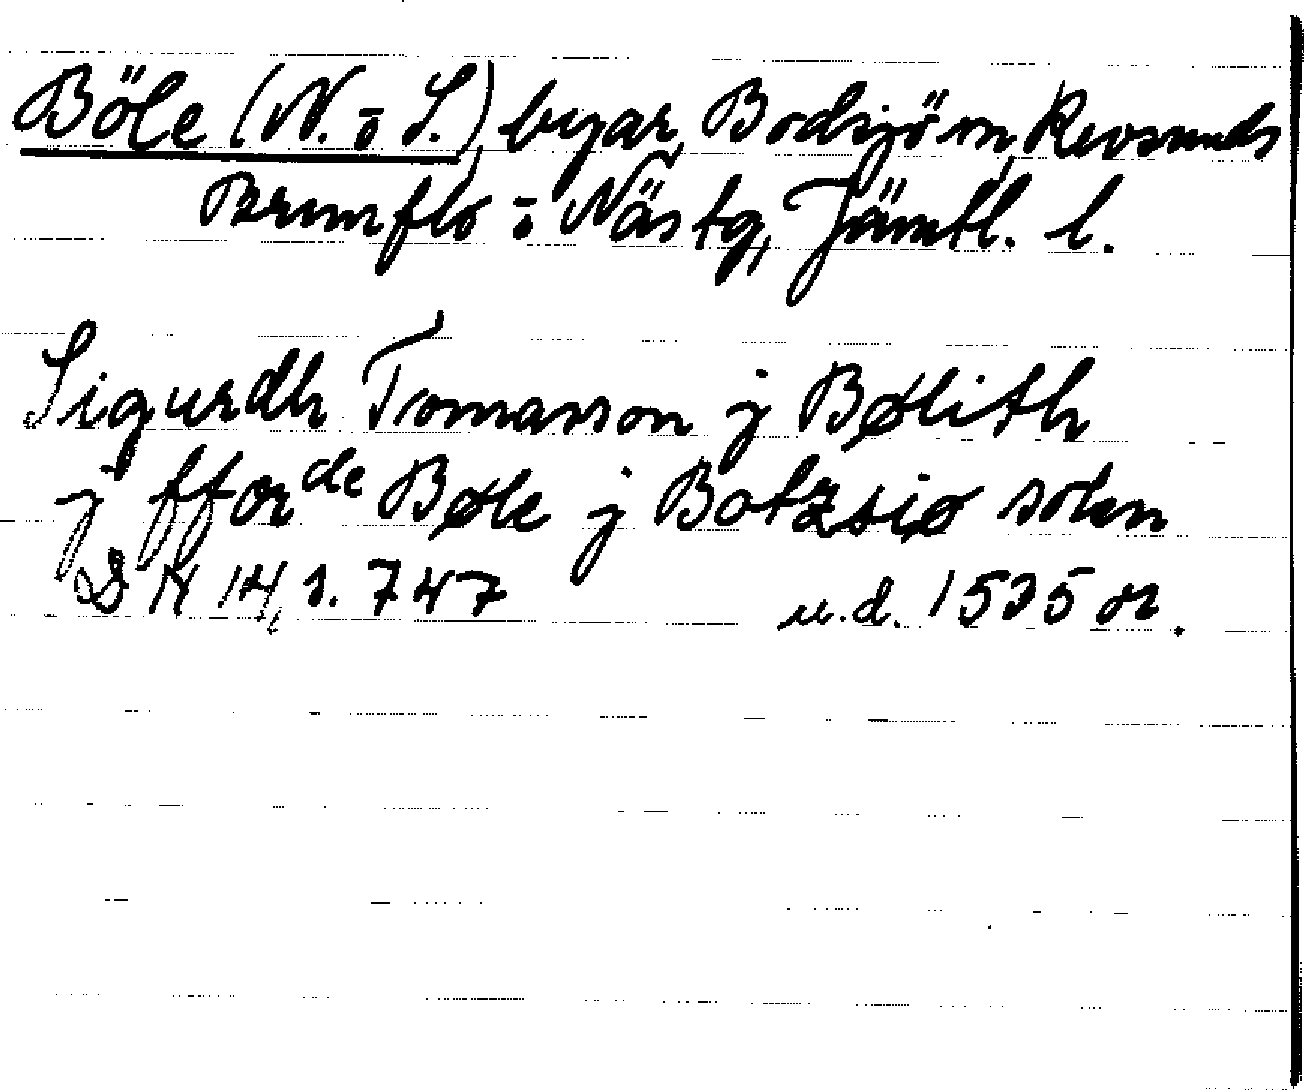 Böle (N. o S.), byar, Bodsjö sn, Revsunds
Brunflo o Näs tg, Jämtl. l.
Sigurdh Tomasson j Bølith
j ffor de Bøle j Botzsiø soken
DN 14, s. 747 u.d. 1535 or.